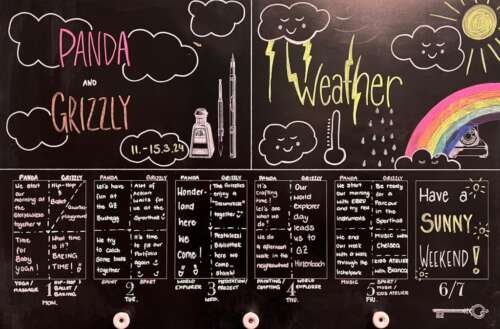 PANDA
AND
GRIZZLY
11.-15.3.24
Weather
PANDA
We start
our
morning at
the
PANDA
GRIZZLY
Hip-Hop
Ballet
Time
for
Baby
yoga!
What
time is
it?
BAKING
TIME!
YOGA/
MASSAGE
1
MON.
HIP-HOP/
BALLET/
BAKING
PANDA
Let's
have
fun
at
GZ
Buchegg
We try
to catch
some
together
GRIZZLY
A lot of
Action
waits for
us at the
Sporthalle
It's time
to fix our
Portfolio
again
SPORT/
2
TUE.
SPORT/
PANDA
Wonder-
land
here
we
come!
GRIZZLY
The Grizzlies
enjoy a
Pestalozzi
Bibliothek
here we
come...
WORLD
EXPLORER
3
WED.
MEDITATION/
PROJECT
PANDA
It's
crafting
time!
Let's see
what we
do
We do
a afternoon
walk in the
neighbourhood
GRIZZLY
Our
World
Explorer
day
leads
us to
GZ
Hirzenbach
PAINTING/
CRAFTING
4
THU.
WORLD
EXPLORER
PANDA
We start
our
Morning
with
and his
music
We end
our week
with a walk
through the
GRIZZLY
Be ready
for a
Parcour
in the
Sporthalle
MUSIC with
Chelsea
KIDS
Atelier
with Bianca
MUSIC
5
FRI.
SPORT/
MUSIC/
KIDS ATELIER
Have a
SUNNY
WEEKEND!
6/7